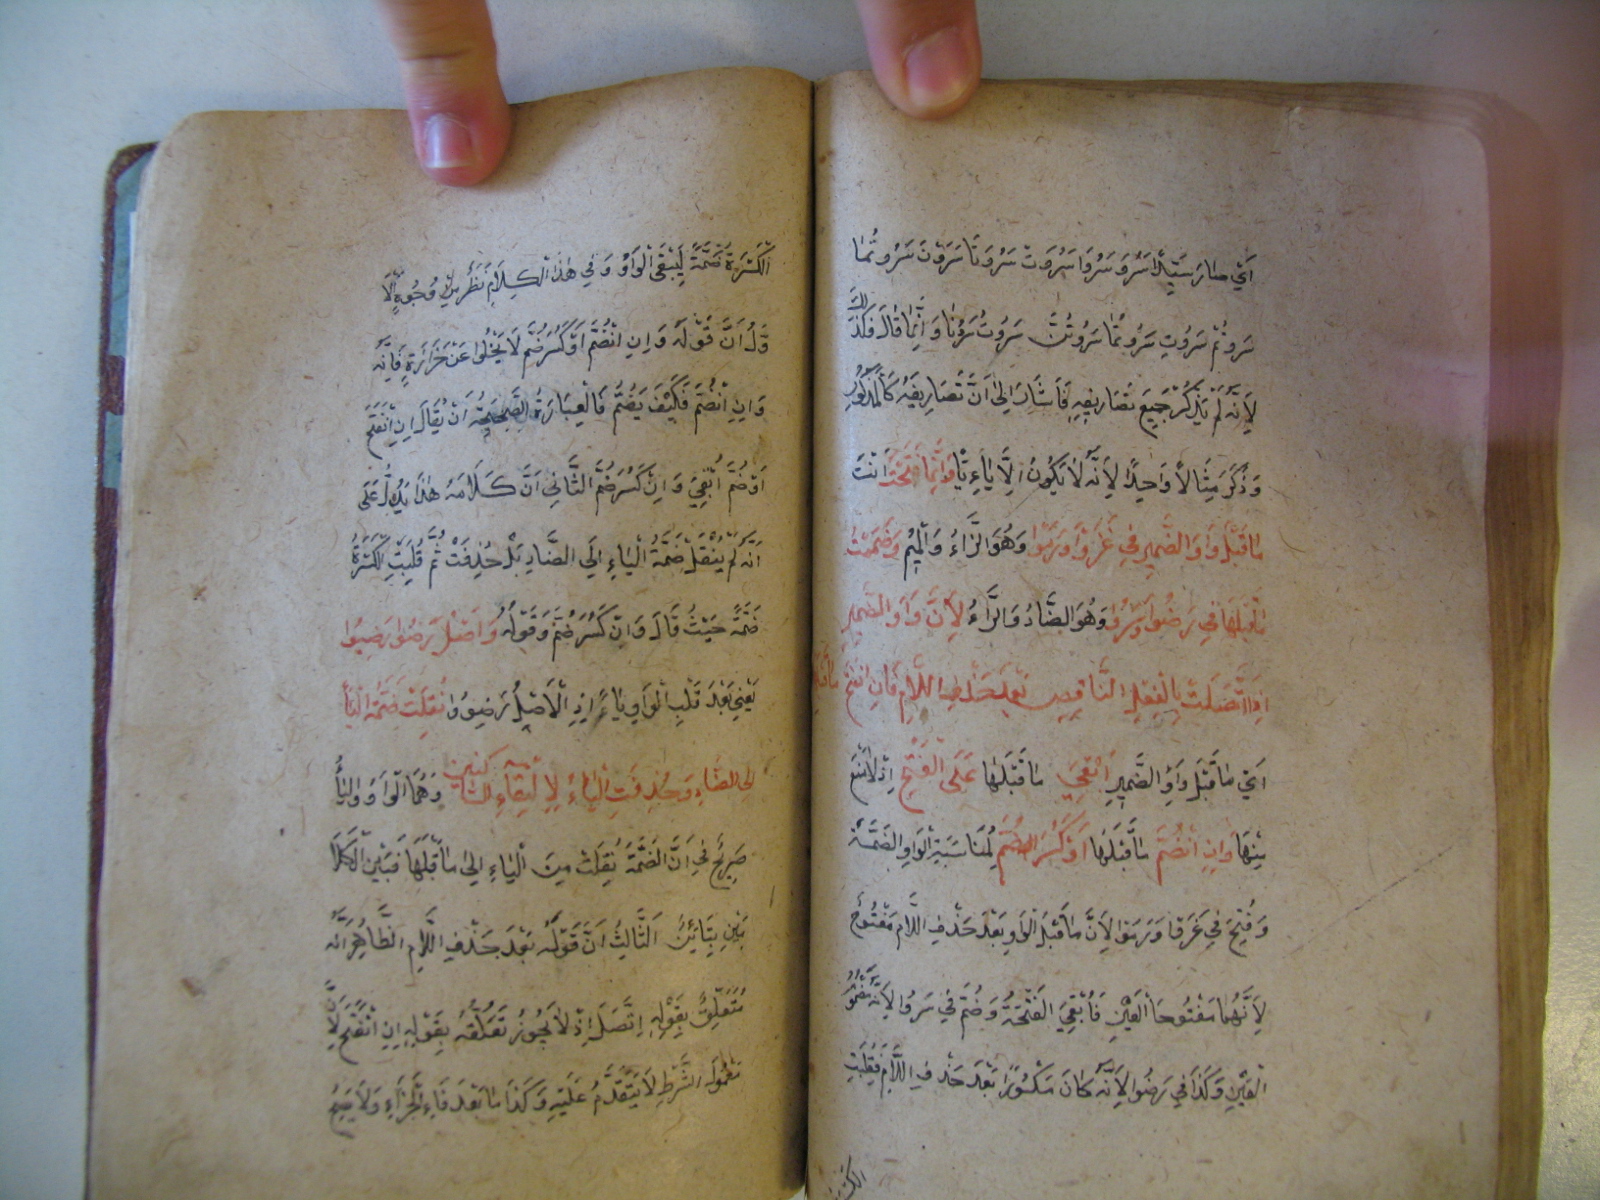 اَيْ صَارَ سَيِّدًا سَرُوَ سَرُوَا سَرُوْا سَرُوَتْ سَرُوَتَا سَرُوْنَ سَرُوْتَ سَرُوْتُمَا
سَرُوْتُمْ سَرُوْتِ سَرُوْتُمَا سَرُوْتُنَّ سَرُوْتُ سَرُوْنَا وَاِنَّمَا قَالَ فَكَذٰلِكَ
لِاَنَّهُ لَمْ يَذْكُرْ جَمِيعَ تَصَارِيفِهِ فَاَشَارَ اِلٰى اَنَّ تَصَارِيفَهُ كَالْمَذْكُورِ
وَذَكَرَ مِثَالًا وَاحِدًا لِاَنَّهُ لَا يَكُونُ اِلَّا يَائِيًّا وَاِنَّمَا فَتَحْتَ اَنْتَ
مَا قَبْلَ وَاوِ الضَّمِيرِ فِي غَزَوْا وَرَمَوْا وَهُوَ الزَّاءُ وَالْمِيمُ وَضَمَمْتَ
مَا قَبْلَهَا فِي رَضُوا وَسَرُوا وَهُوَ الضَّادُ وَالرَّاءُ لِاَنَّ وَاوَ الضَّمِيرِ
اِذَا اتَّصَلَتْ بِالْفِعْلِ النَّاقِصِ بَعْدَ حَذْفِ اللَّامِ فَاِنِ انْفَتَحَ مَا قَبْلَهَا
اَيْ مَا قَبْلَ وَاوِ الضَّمِيرِ اُبْقِيَ مَا قَبْلَهَا عَلَى الْفَتْحِ اِذْ لَا مَنْعَ
مِنْهَا وَاِنِ انْضَمَّ مَا قَبْلَهَا اَوْ كُسِرَ ضُمَّ لِمُنَاسَبَةِ الْوَاوِ الضَّمَّةَ
وَفُتِحَ فِي غَزَوْا وَرَمَوْا لِاَنَّ مَا قَبْلَ الْوَاوِ بَعْدَ حَذْفِ اللَّامِ مَفْتُوحٌ
لِاَنَّهُمَا مَفْتُوحَا الْعَيْنِ فَاُبْقِيَ الْفَتْحَةُ وَضُمَّ فِي سَرُوا لِاَنَّهُ مَضْمُومُ
الْعَيْنِ وَكَذَا فِي رَضُوا لِاَنَّهُ كَانَ مَكْسُورًا بَعْدَ حَذْفِ اللَّامِ فَقُلِبَتِ
الْكَسْرَةُ ضَمَّةً لِيَبْقَى الْوَاوُ وَفِي هٰذَا الْكَلَامِ نَظَرٌ مِنْ وُجُوهٍ الْاَ
وَّلُ اَنَّ قَوْلَهُ وَاِنِ انْضَمَّ اَوْ كُسِرَ ضُمَّ لَا يَخْلُوا عَنْ حَزَازَةٍ فَاِنَّهُ
وَاِنِ انْضَمَّ فَكَيْفَ يُضَمُّ فَالْعِبَارَةُ الصَّحِيحَةُ اَنْ يُقَالَ اِنِ انْفَتَحَ
اَوْ ضُمَّ اُبْقِيَ وَاِنْ كُسِرَ ضُمَّ الثَّانِي اَنَّ كَلَامَهُ هٰذَا يَدُلُّ عَلَى
اَنَّهُ لَمْ يُنْقَلْ ضَمَّةُ الْيَاءِ اِلَى الضَّادِ بَلْ حُذِفَتْ ثُمَّ قُلِبَتِ الْكَسْرَةُ
ضَمَّةً حَيْثُ قَالَ وَاِنْ كُسِرَ ضُمَّ وَقَوْلُهُ وَاَصْلُ رَضُوا رَضِيُوا
يَعْنِي بَعْدَ قَلْبِ الْوَاوِ يَاءً اِذِ الْاَصْلُ رَضِوُوا نُقِلَتْ ضَمَّةُ الْيَاءِ
اِلَى الضَّادِ وَحُذِفَتِ الْيَاءُ لِالْتِقَاءِ السَّاكِنَيْنِ وَهُمَا الْوَاوُ وَالْيَاءُ
صَرِيحٌ فِي اَنَّ الضَّمَّةَ نُقِلَتْ مِنَ الْيَاءِ اِلٰى مَا قَبْلَهَا فَبَيْنَ الْكَلَا
مَيْنِ تَبَايُنٌ الثَّالِثُ اَنَّ قَوْلَهُ بَعْدَ حَذْفِ اللَّامِ الظَّاهِرُ اَنَّهُ
مُتَعَلِّقٌ بِقَوْلِهِ اِتَّصَلَ اِذْ لَا يَجُوزُ تَعَلُّقُهُ بِقَوْلِهِ اِنِ انْفَتَحَ لِاَنَّ
مَعْمُولَ الشَّرْطِ لَا يَتَقَدَّمُ عَلَيْهِ وَكَذَا مَا بَعْدَ فَاءِ الْجَزَاءِ وَلَا يَصِحُّ